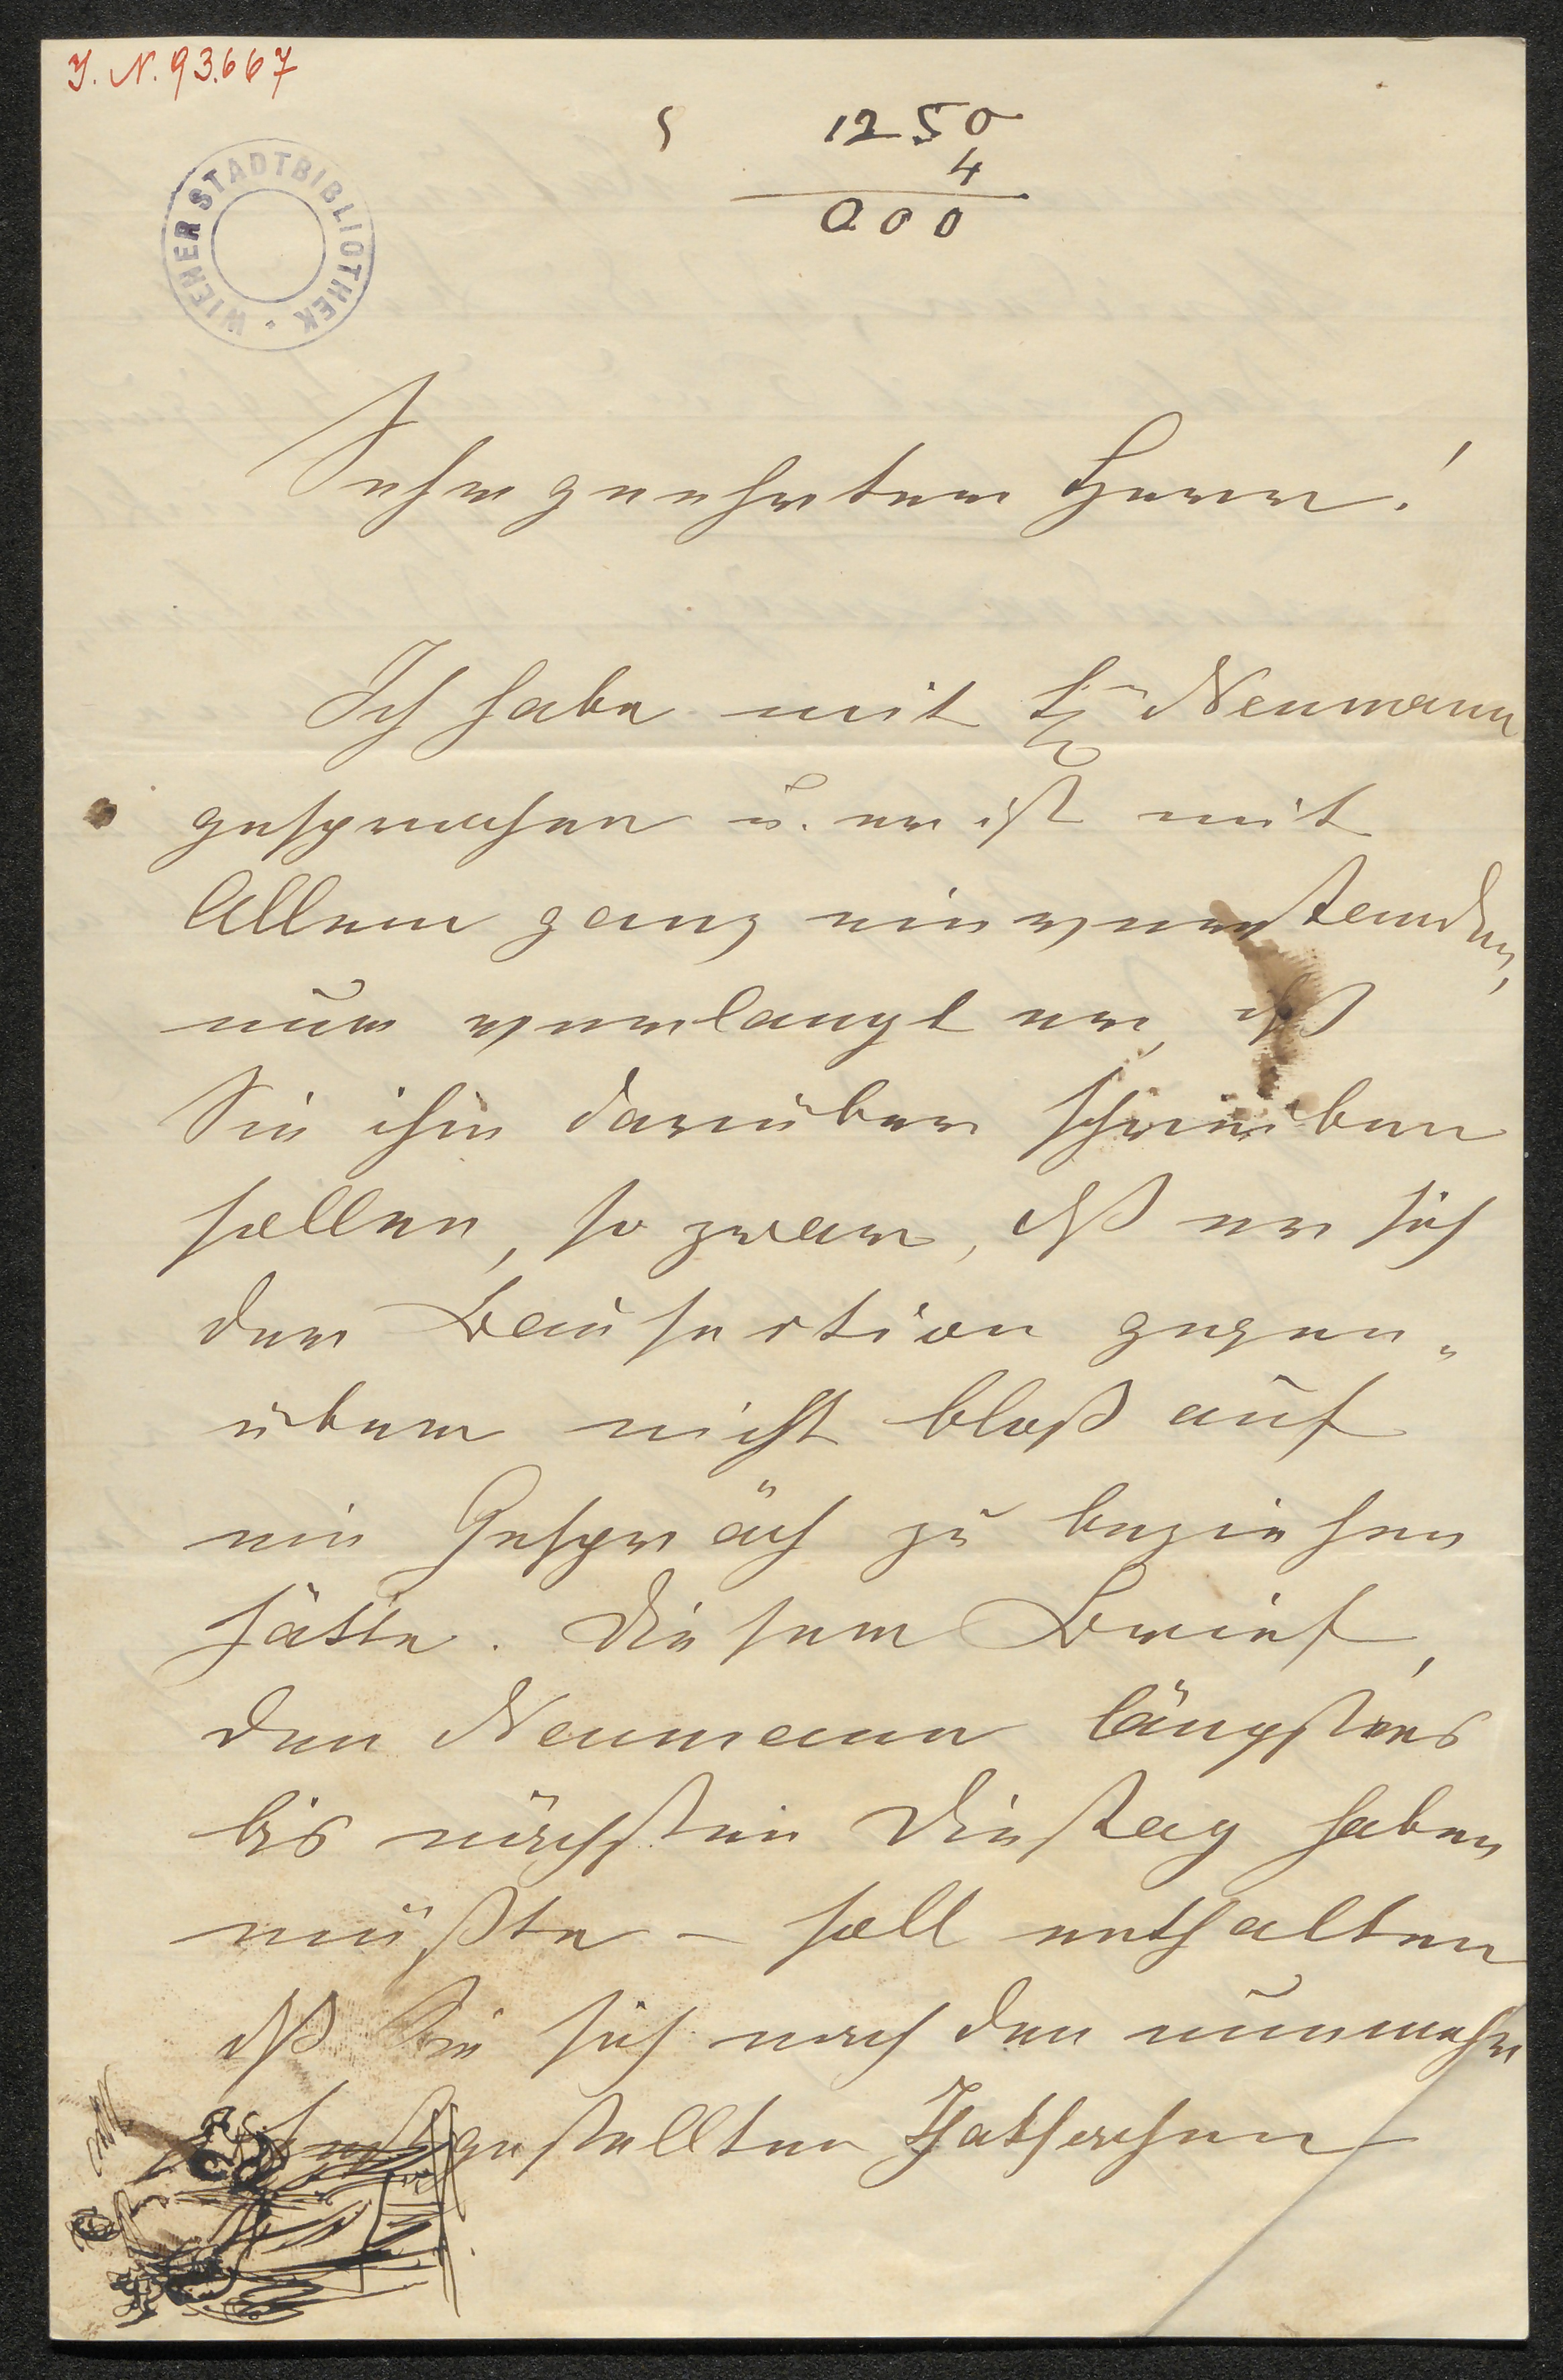 J. N. 93.667
WIENER STADTBIBLIOTHEK
5 1250
4
000
Sehr geehrter Herr!
Ich habe mit H. Neumann
gesprochen u. er ist mit
Allem ganz einverstanden,
nur verlangt er, dß
Sie ihm darüber schreiben
sollen, so zwar, dß er sich
der Bausection gegen„
über nicht bloß auf
ein Gespräch zu beziehen
hätte. Dieser Brief,
den Neumann längstens
bis nächsten Dienstag haben
müßte – soll enthalten
dß Sie sich nach den nunmehr
festgestellten Thatsachen